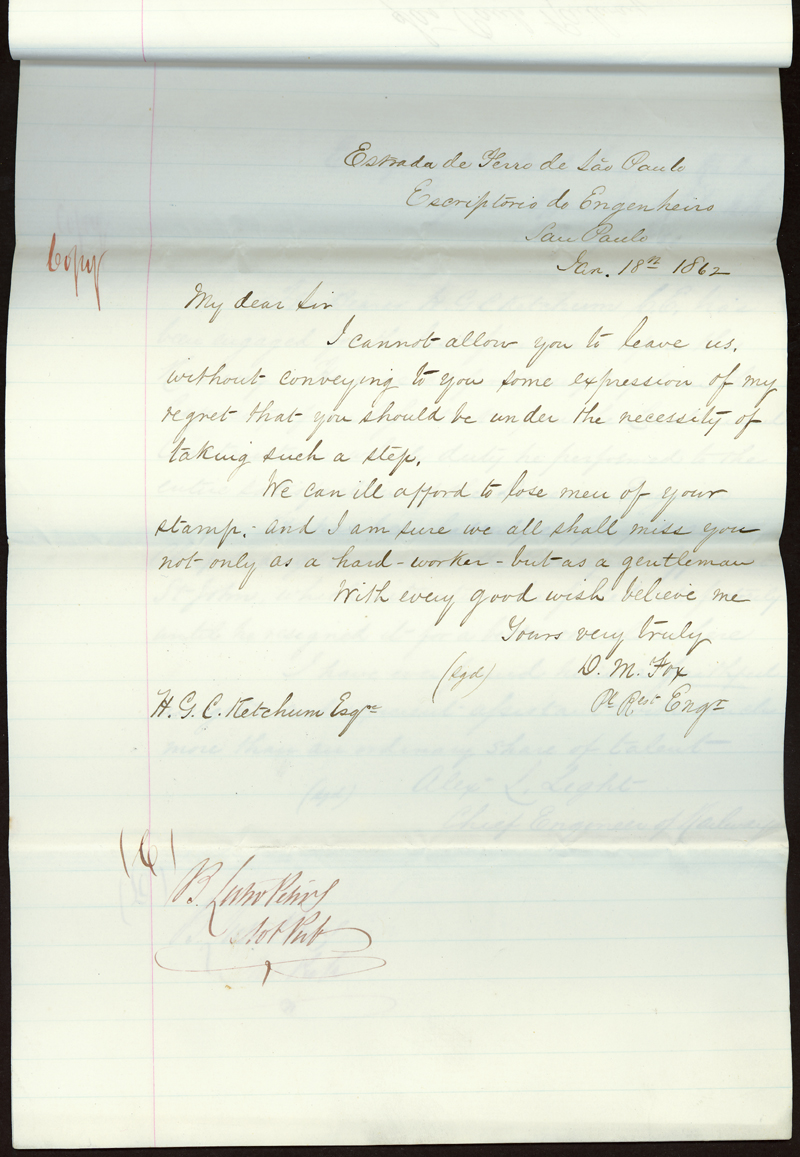 Estrada de Ferro de São Paulo
Escriptorio do Engenheiro
San Paulo
Copy
Jan. 18th 1862
My dear Sir
I cannot allow you to leave us.
without conveying to you some expression of my
regret that you should be under the necessity of
taking such a step.
We can ill afford to lose men of your
stamp; and I am sure we all shall miss you
not only as a hard-worker - but as a gentleman
With every good wish believe me
Yours very truly
(sgd) D. M. Fox
H. G. C. Ketchum Esqre Engr
more than an ordinary share of talent
(sgd) Alex L. Light
Chief Engineer of Railway
(C)
B. Lester Peters
Not Pub